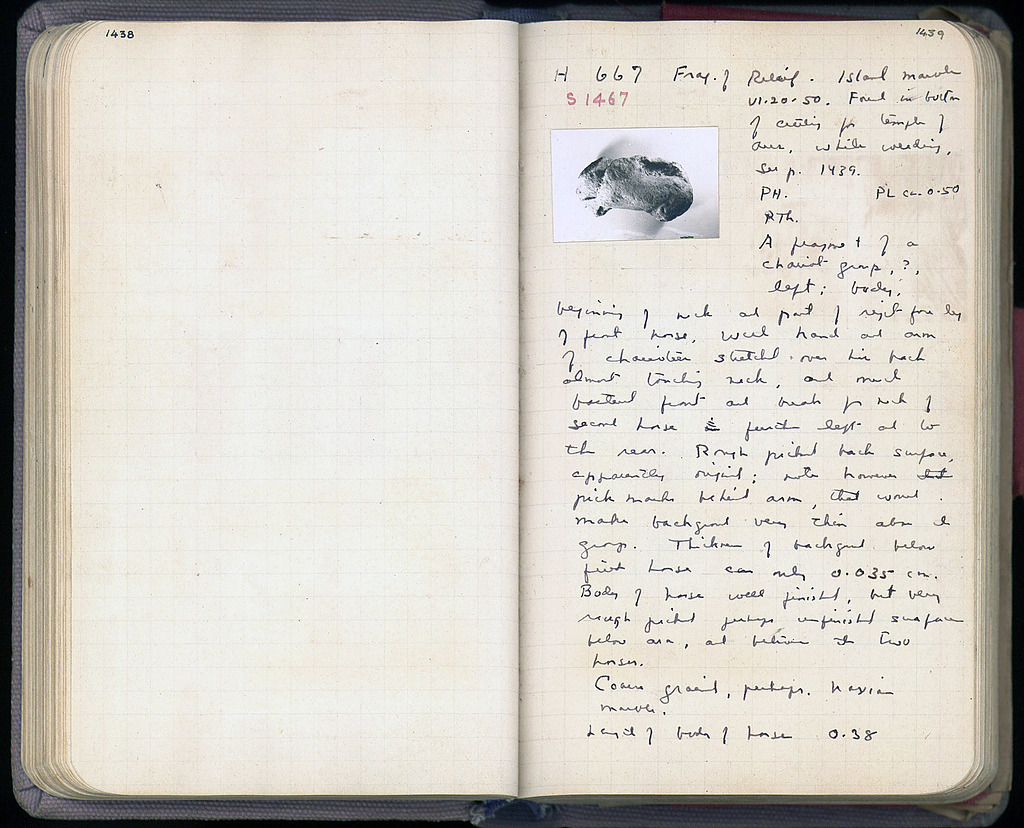 1438
1439
H 667 Frag. of Relief. Island marble
S 1467
VI-20-50. Found in bottom
of cutting for temple of
Ares, while weeding,
See p. 1439.
PH. PL ca. 0.50
PTh.
A fragment of a
chariot group, ?,
left; body,
beginning of neck and part of right fore leg
of front horse, hand and arm
of charioteer stretched over his back
almost touching neck, and much
battered front and break for neck of
second horse further left and to
the rear. Rough picked back surface,
apparently original; note however
pick marks behind arm, that would
make background very thin above the
group. Thickness of background below
first horse can only 0.035 cm.
Body of horse well finished, but very
rough picked perhaps unfinished surface
below arm, and between the two
horses.
Coarse grained, perhaps Naxian
marble.
Length of body of horse 0.38